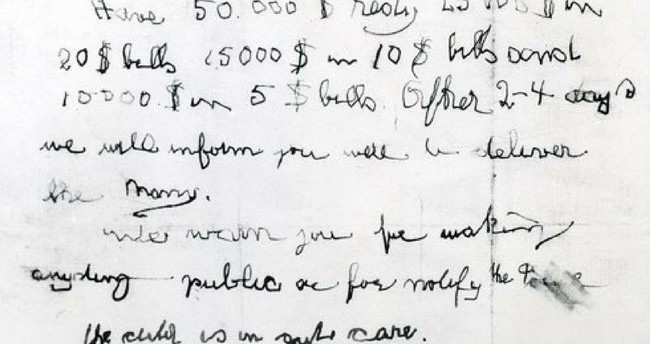 Have 50.000 $ redy 25000 $ in
20 $ bills 15000 $ in 10 $ bills and
10000 $ in 5 $ bills. After 2-4 days
we will inform you were to deliver
the Mony.
We warn you for making
anyding public or for notify the Police
the child is in gute care.